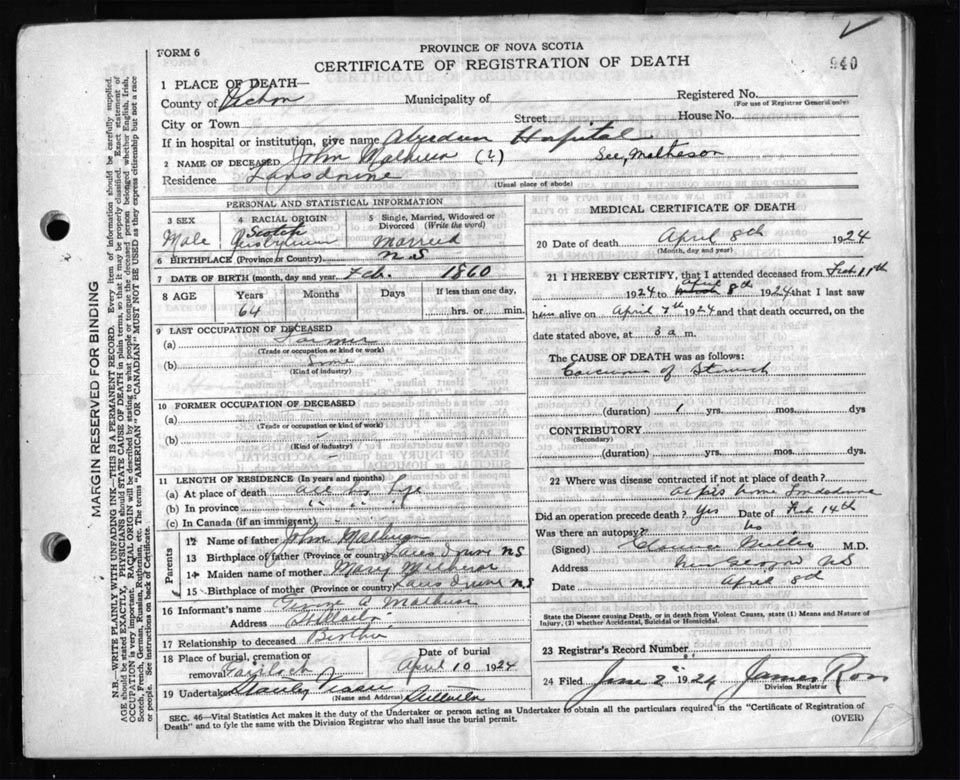 FORM 6
PROVINCE OF NOVA SCOTIA
CERTIFICATE OF REGISTRATION OF DEATH
940
1 PLACE OF DEATH—
County of Pictou Municipality of Registered No.
(For use of Registrar General only)
City or Town Street House No.
If in hospital or institution, give name Aberdeen Hospital
2 NAME OF DECEASED John Matheson (?) See, Matheson
Residence Lansdowne
(Usual place of abode)
PERSONAL AND STATISTICAL INFORMATION
3 SEX 4 RACIAL ORIGIN 5 Single, Married, Widowed or Divorced (Write the word)
Male Scotch Married
6 BIRTHPLACE (Province or Country) N S
7 DATE OF BIRTH (month, day and year) Feb. 1860
8 AGE Years Months Days If less than one day,
64 hrs. or min.
9 LAST OCCUPATION OF DECEASED
(a) Farmer
(Trade or occupation or kind or work)
(b)
(Kind of industry)
10 FORMER OCCUPATION OF DECEASED
(a)
(Trade or occupation or kind of work)
(b)
(Kind of industry)
11 LENGTH OF RESIDENCE (In years and months)
(a) At place of death all his life
(b) In province " " "
(c) In Canada (if an immigrant)
Parents
12 Name of father John Matheson
13 Birthplace of father (Province or country) Lansdowne NS
14 Maiden name of mother Mary Matheson
15 Birthplace of mother (Province or country) Lansdowne NS
16 Informant's name George A Matheson
Address
17 Relationship to deceased Brother
18 Place of burial, cremation or removal Date of burial
April 10 1924
19 Undertaker Stanley
(Name and Address)
MEDICAL CERTIFICATE OF DEATH
20 Date of death April 8th 1924
(Month, day and year)
21 I HEREBY CERTIFY, that I attended deceased from Feb. 11th
1924 to April 8th 1924 that I last saw
him alive on April 7th 1924 and that death occurred, on the
date stated above, at 3 a m.
The CAUSE OF DEATH was as follows:
Carcinoma of Stomach
(duration) 1 yrs. mos. dys
CONTRIBUTORY
(Secondary)
(duration) yrs. mos. dys.
22 Where was disease contracted if not at place of death?
at his home Lansdowne
Did an operation precede death? Yes Date of Feb 14th
Was there an autopsy? No
(Signed) Clarence Miller M.D.
Address New Glasgow NS
Date April 8th
State the Disease causing Death, or in death from Violent Causes, state (1) Means and Nature of
Injury, (2) whether Accidental, Suicidal or Homicidal.
23 Registrar's Record Number
24 Filed June 2 1924 James Ross
Division Registrar
SEC. 46—Vital Statistics Act makes it the duty of the Undertaker or person acting as Undertaker to obtain all the particulars required in the "Certificate of Registration of
Death" and to fyle the same with the Division Registrar who shall issue the burial permit.
(OVER)
MARGIN RESERVED FOR BINDING
N.B.—WRITE PLAINLY WITH UNFADING INK—THIS IS A PERMANENT RECORD. Every item of information should be carefully supplied.
AGE should be stated EXACTLY. PHYSICIANS should STATE CAUSE OF DEATH in plain terms, so that it may be properly classified. Exact statement of
OCCUPATION is very important. RACIAL ORIGIN will be described by stating to what people or tongue the deceased person belonged whether English, Irish,
Scotch, French, German, Russian, Ruthenian, etc. The terms "AMERICAN" OR "CANADIAN" MUST NOT BE USED as they express citizenship but not a race
or people. See instructions on back of Certificate.